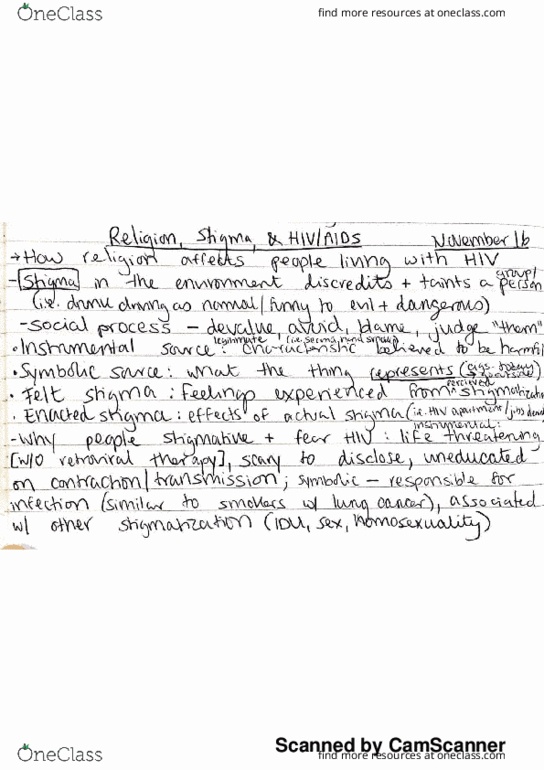 OneClass
find more resources at oneclass.com
Religion, Stigma, & HIV/AIDS November 16
→How religion affects people living with HIV
group/
-Stigma in the environment discredits + taints a person
(i.e. drunk driving as normal/funny to evil + dangerous)
-Social process - devalue, avoid, blame, judge "them"
legitimate (i.e. second hand smoke)
•Instrumental source: characteristic believed to be harmful
•Symbolic source: what the thing represents (cigs.
perceived
•Felt stigma: feelings experienced from stigmatization
•Enacted stigma: effects of actual stigma (i.e. HIV apartment/jobs
instrumental:
-Why people stigmative + fear HIV: life threatening
[w/o retroviral therapy], scary to disclose, uneducated
on contraction/transmission; symbolic - responsible for
infection (similar to smokers w/ lung cancer), associated
w/ other stigmatization (IDU, sex, homosexuality)
Scanned by CamScanner
OneClass
find more resources at oneclass.com